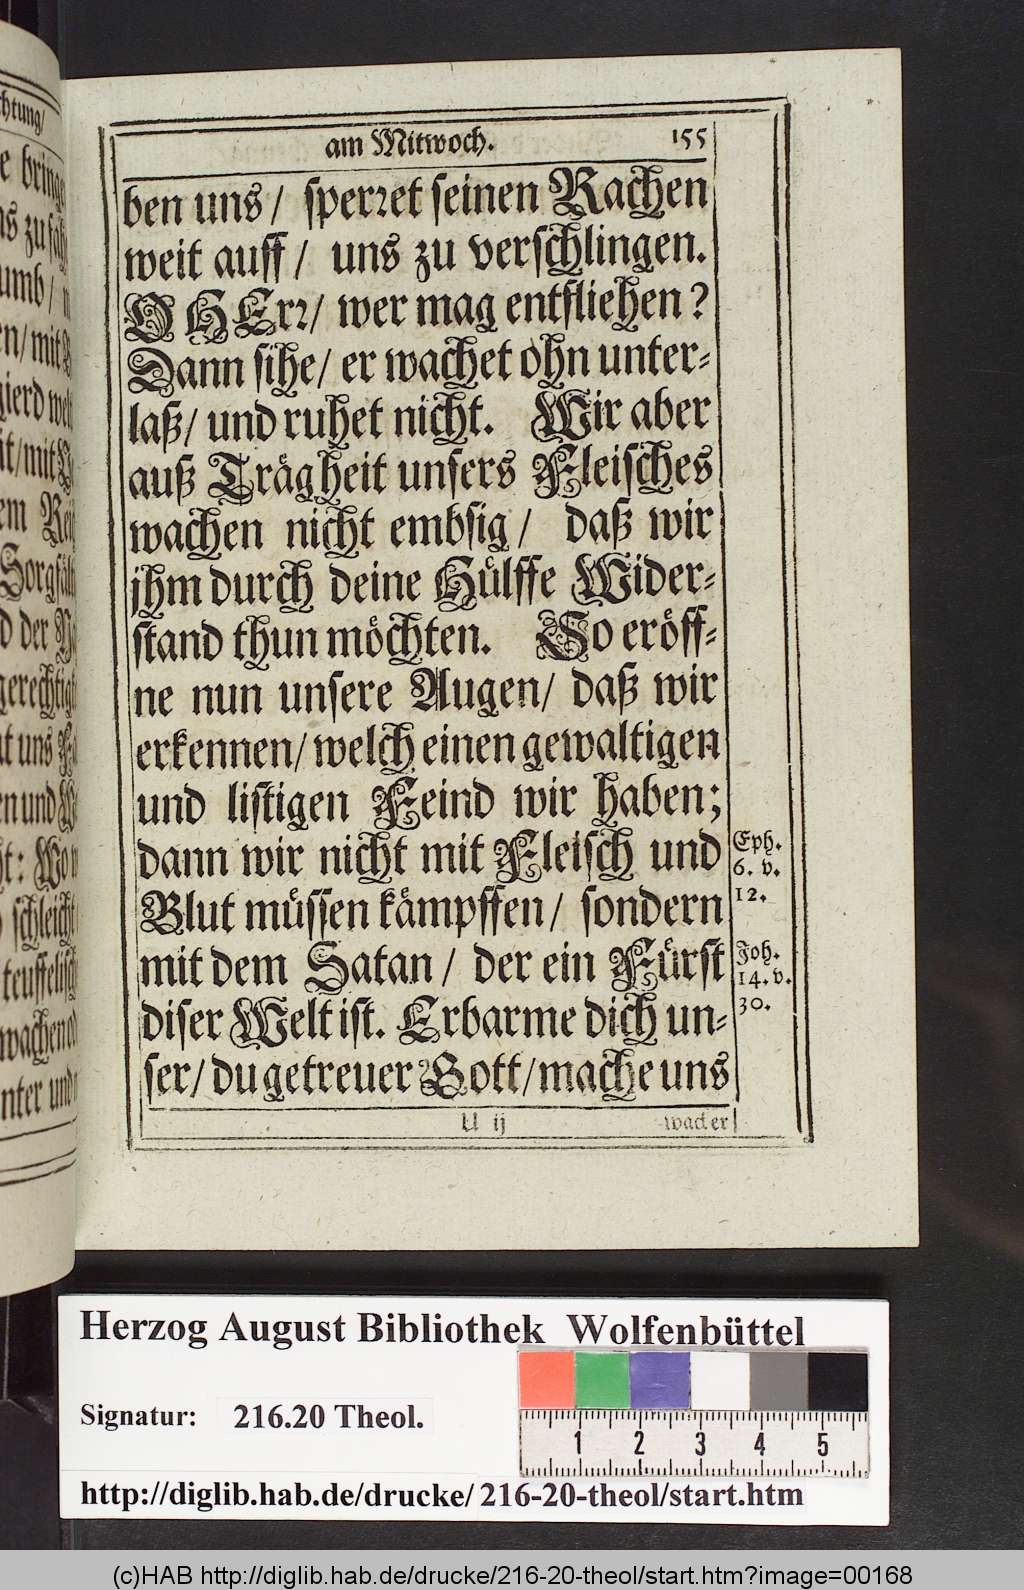 am Mitwoch. 155
ben uns / sperret seinen Rachen
weit auff / uns zu verschlingen.
O HErr / wer mag entfliehen ?
Dann sihe / er wachet ohn unter-
laß / und ruhet nicht. Wir aber
auß Trägheit unsers Fleisches
wachen nicht embsig / daß wir
jhm durch deine Hülffe Wider-
stand thun möchten. So eröff-
ne nun unsere Augen / daß wir
erkennen / welch einen gewaltigen
und listigen Feind wir haben;
dann wir nicht mit Fleisch und
Blut müssen kämpffen / sondern
mit dem Satan / der ein Fürst
diser Welt ist. Erbarme dich un-
ser / du getreuer Gott / mache uns
U ij wacker
Eph.
6. v.
12.
Joh.
14. v.
30.
chtung/
e bringe
ns zu
umb /
en / mit
gierd
it / mit
em
Sorgfält
d der
gerechtig
at uns
en und
ht: Wo
schleicht
teuffelisch
wachen
nter und
Herzog August Bibliothek Wolfenbüttel
Signatur: 216.20 Theol.
1 2 3 4 5
http://diglib.hab.de/drucke/ 216-20-theol/start.htm
(c)HAB http://diglib.hab.de/drucke/216-20-theol/start.htm?image=00168